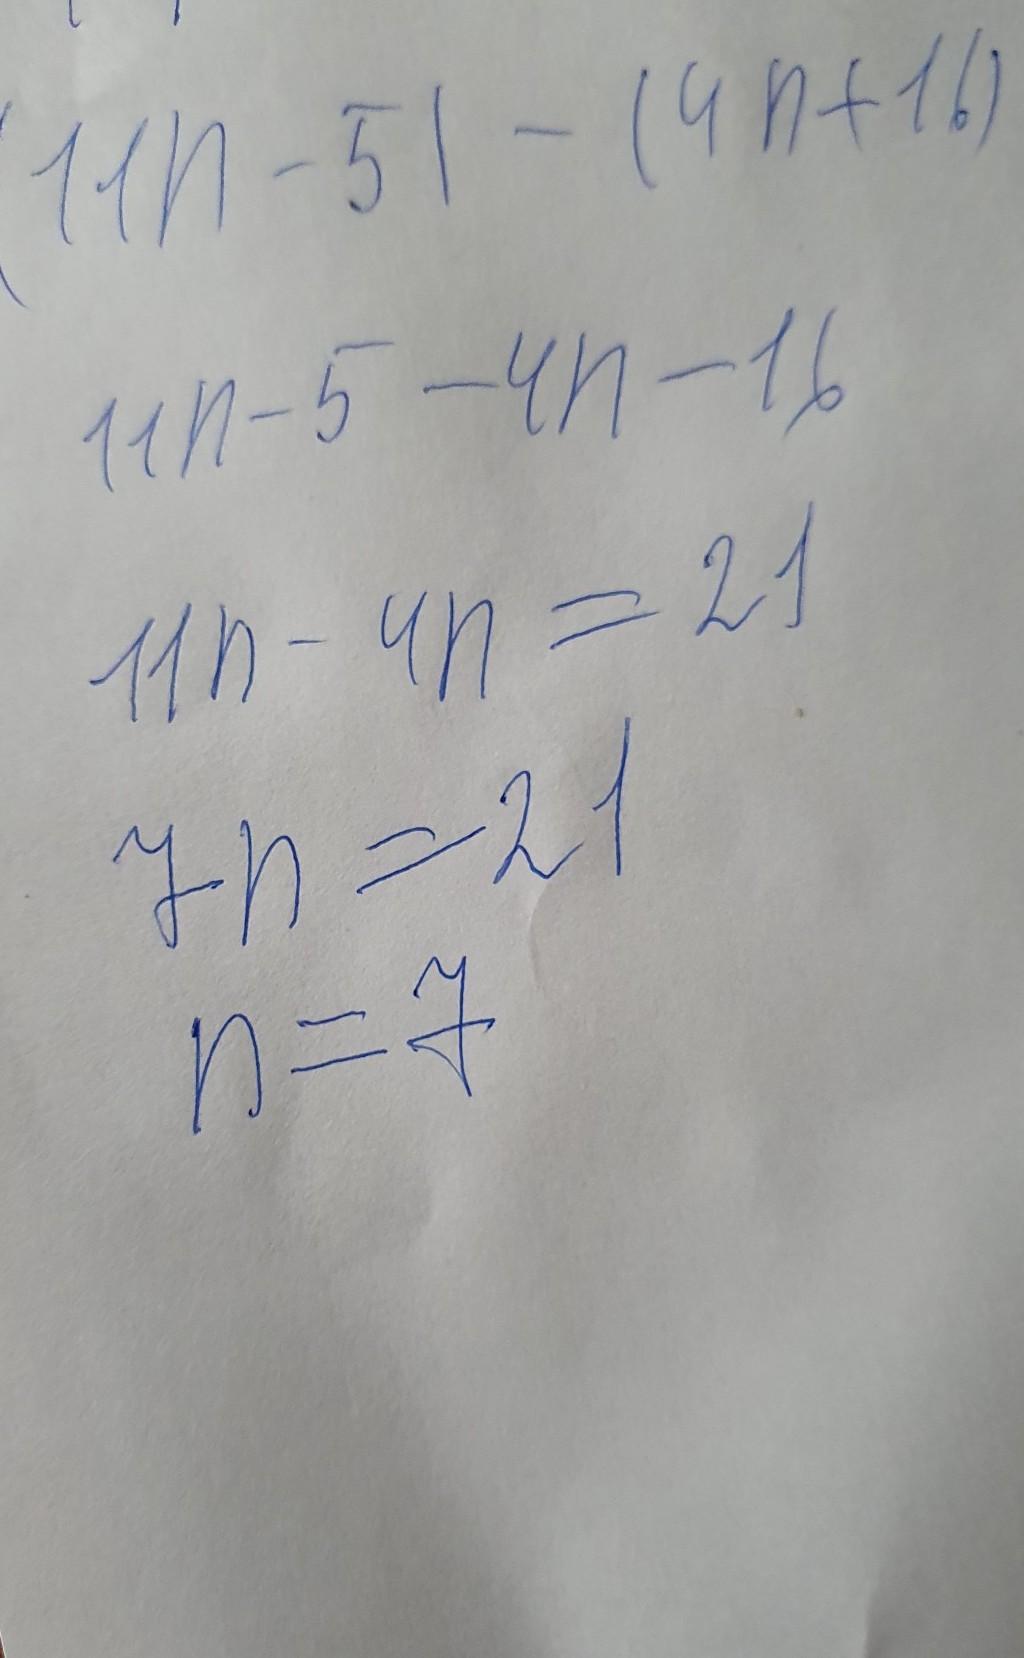 (11n-5) - (4n+16)
11n-5-4n-16
11n-4n=21
7n=21
n=7